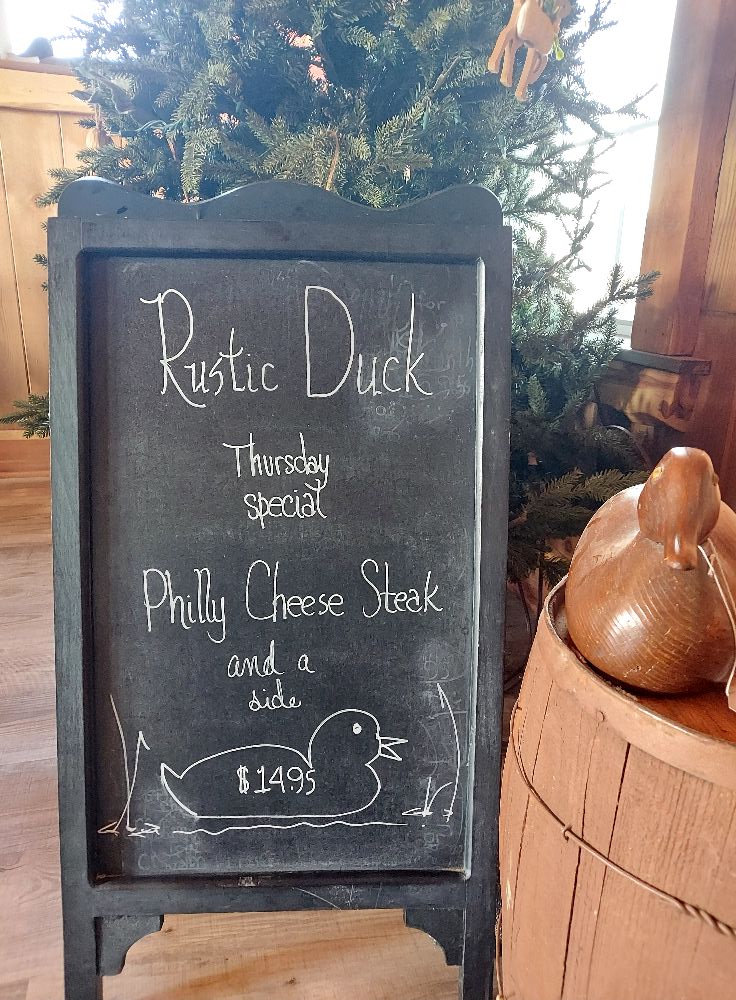 Rustic Duck
Thursday
special
Philly Cheese Steak
and a
side
$14.95